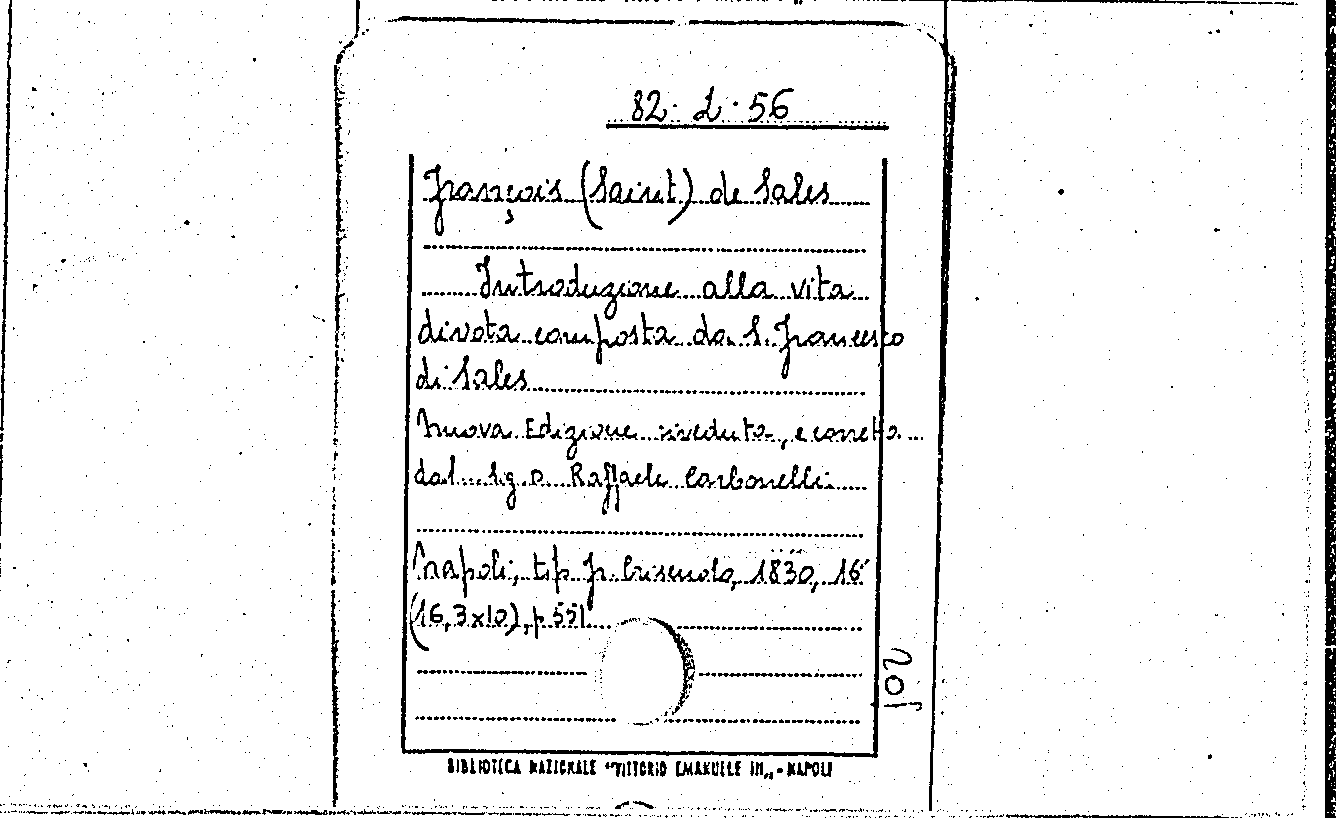 82. L. 56
François (Saint) de Sales
Introduzione alla vita
divota composta da S. Francesco
di Sales
Nuova Edizione riveduta, e corretta
dal Sig. D. Raffaele Carbonelli
Napoli, tip. Fr. 1830, 16°
(16,3x10), p 551
201
BIBLIOTECA NAZIONALE "VITTORIO EMANUELE III„ - NAPOLI